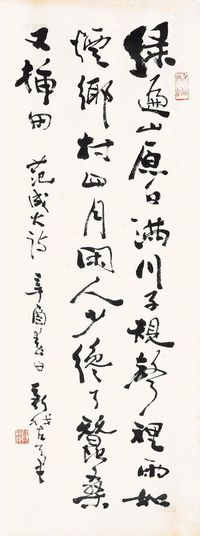 綠遍山原白滿川子規聲裡雨如
煙鄉村四月閑人少纔了蠶桑
又插田 范成大詩 辛酉春日 新我左筆